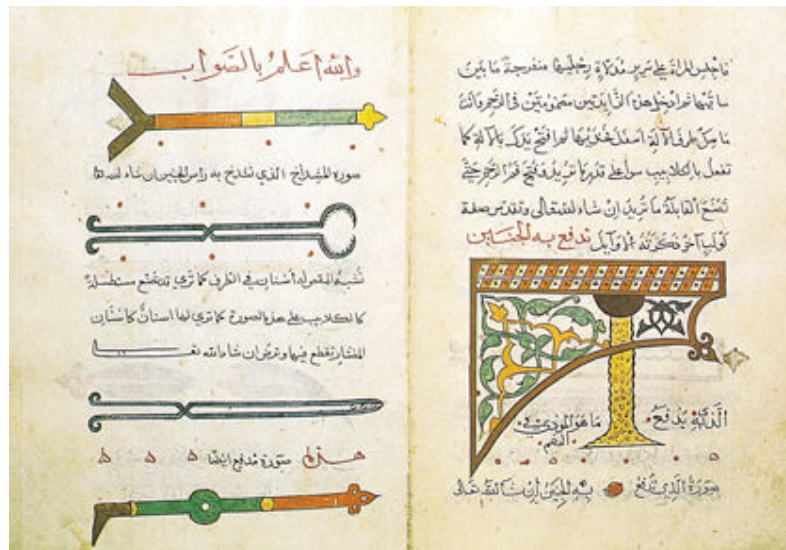 فاجلس المراة على سرير مدلاة رجليها منفرجة ما بين
ساقيها ثم ادخل هذه الزايدتين مضمومتين في الرحم وانت
ماسك طرف الالة اسفل ثم افتح يدك بالالة كما
تفعل بالكلاليب سوا على قدر ما تريد فتح فم الرحم حتى
تصنع القابلة ما تريد ان شاء الله تعالى صفة
لولب اخر ذكرته الاوايل تدفع به الجنين
الذي يدفع ما هو الموذي في
الفم
صورة الذي تدفع به الجنين ان شا الله تعالى
والله اعلم بالصواب
صورة المشداخ الذي تشدخ به راس الجنين ان شاء الله تعا
تشبه المقص له اسنان في الطرف كما تري وقد تصنع مستطيلة
كالكلاليب على هذه الصورة كما تري لها اسنان كاسنان
المنشار تقطع فيها وترض ان شاء الله تعا
صورة مدفع ايضا